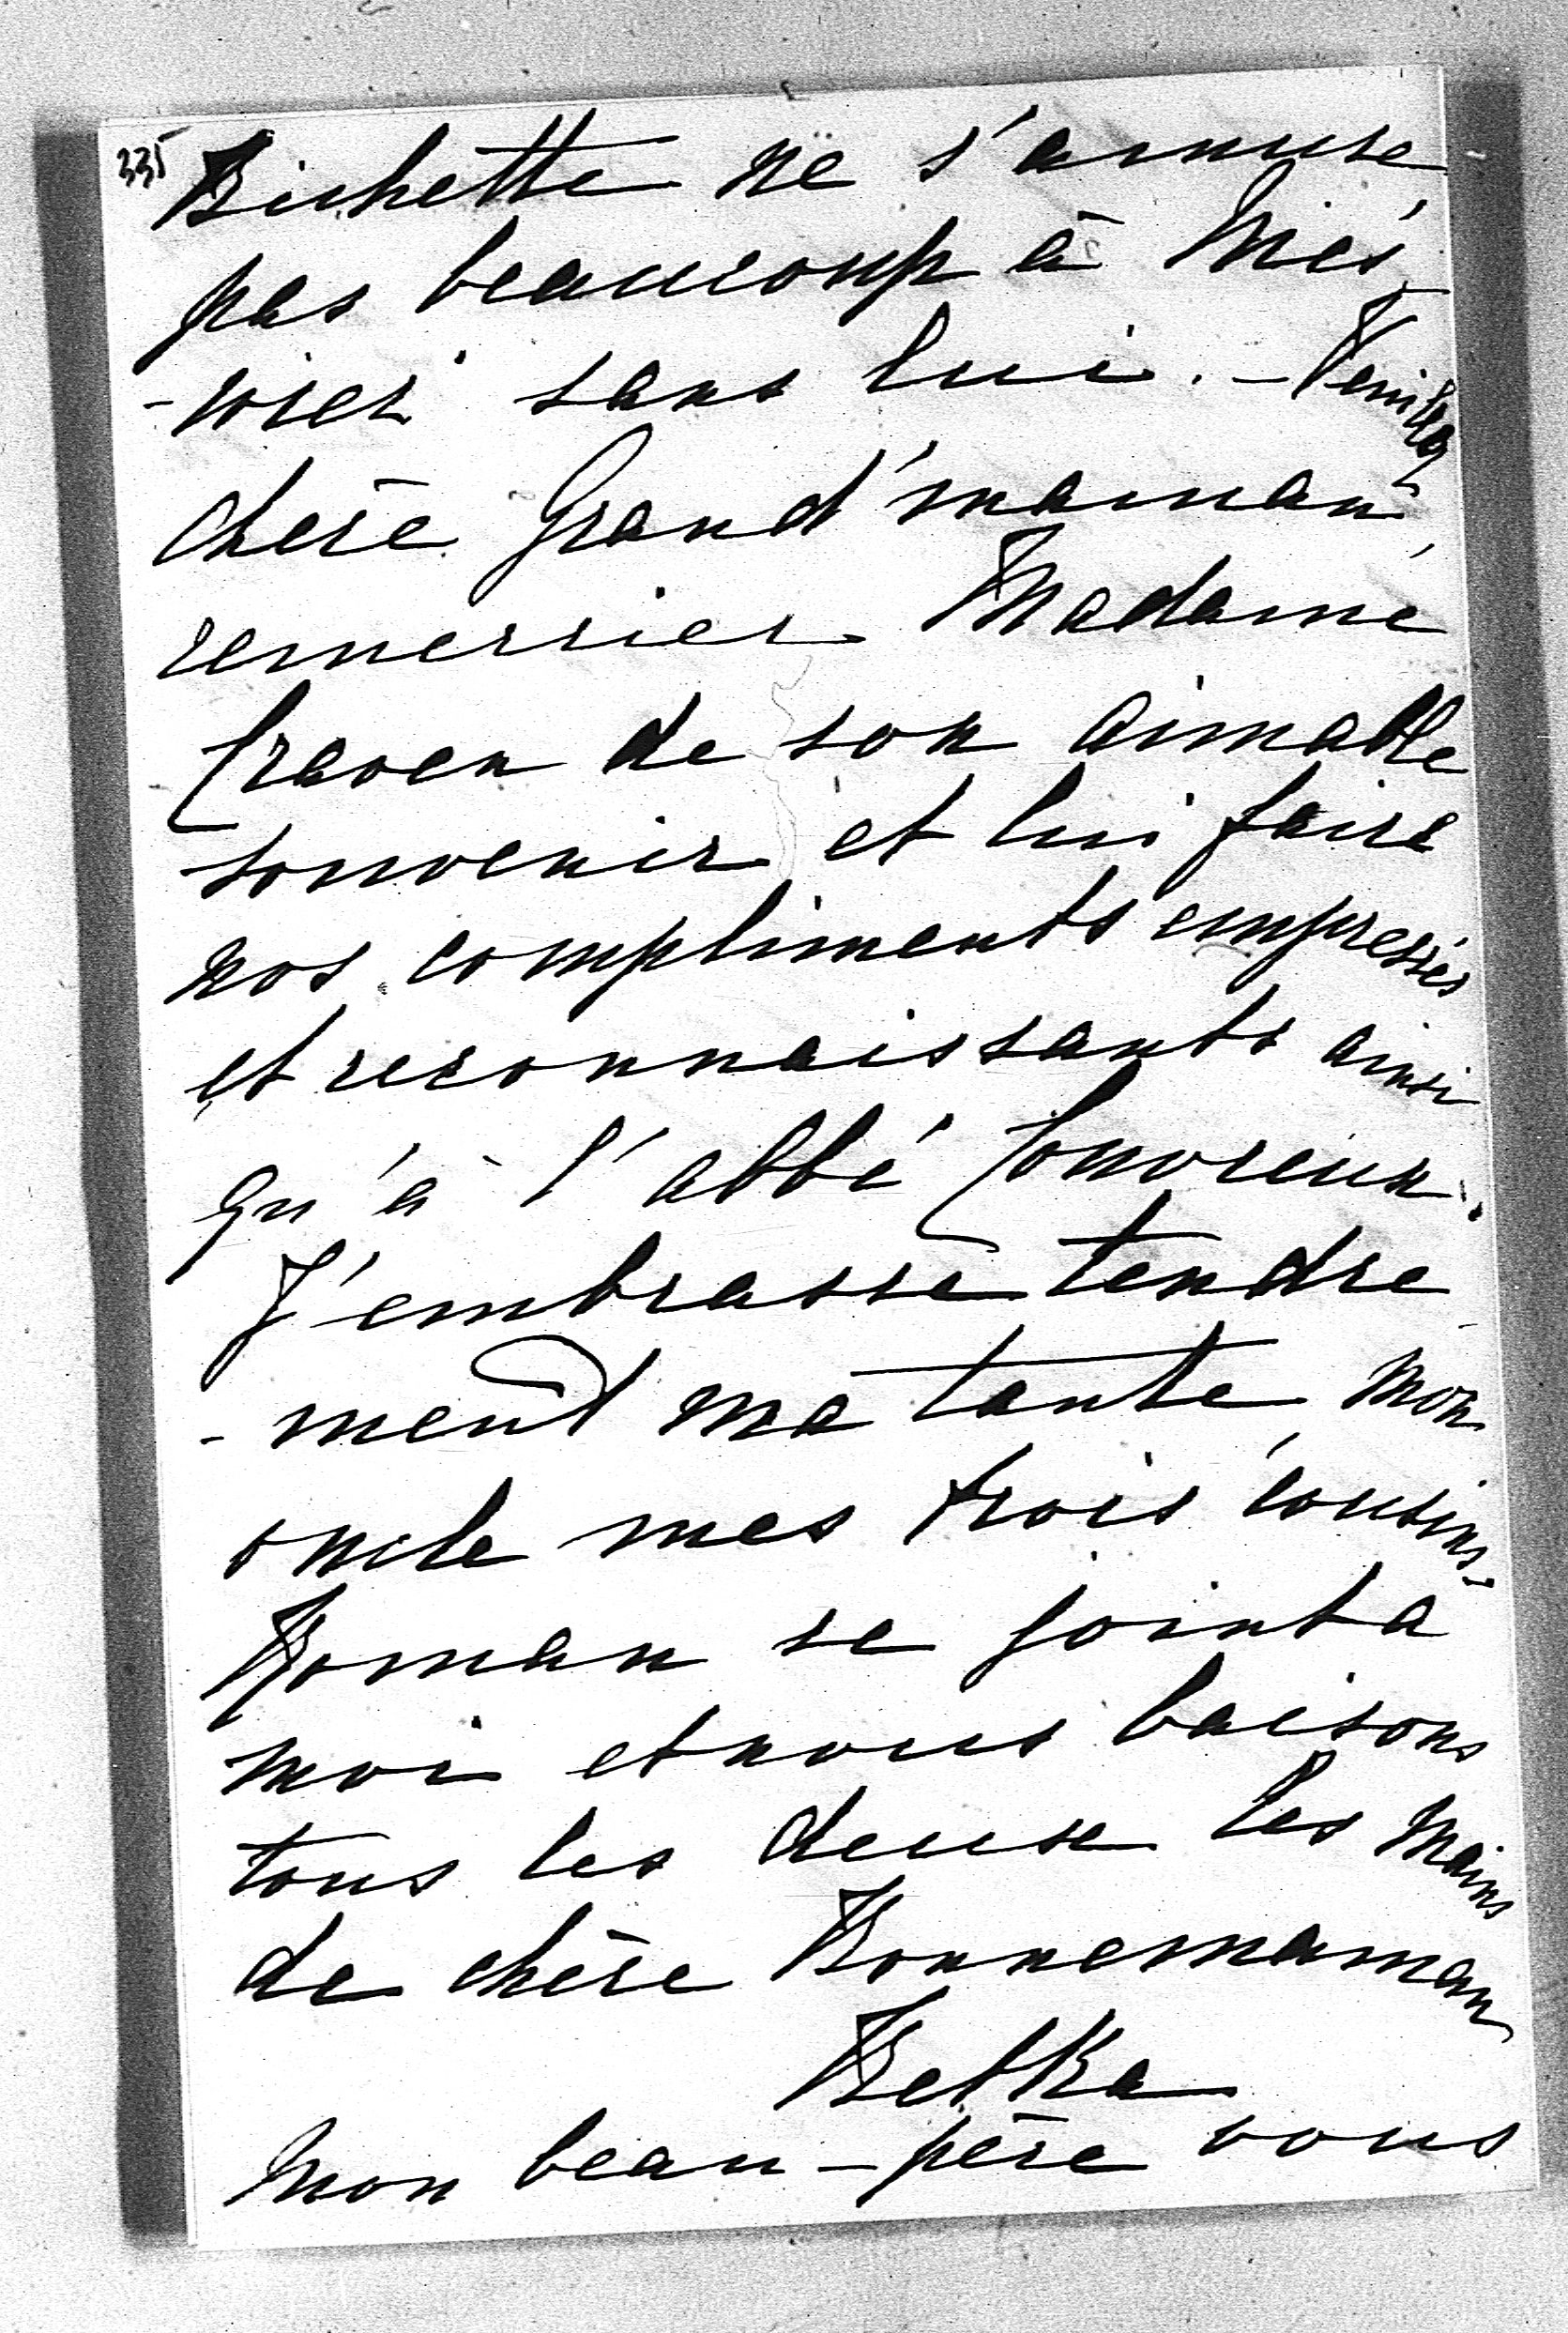 335
Bichette ne s'amuse
pas beaucoup à Niés
-vież sans lui. – Veuillez
chère Grand'maman,
remercier Madame
Craven de son aimable
souvenir et lui faire
nos compliments empressés
et reconnaissants ainsi
qu'à l'abbé Couvreux.
J'embrasse tendre
-ment ma tante, mon
oncle mes trois cousins.
Roman se joint a
moi et nous baisons
tous les deux les mains
de chère Bonnemaman
Betka
Mon beau-père vous